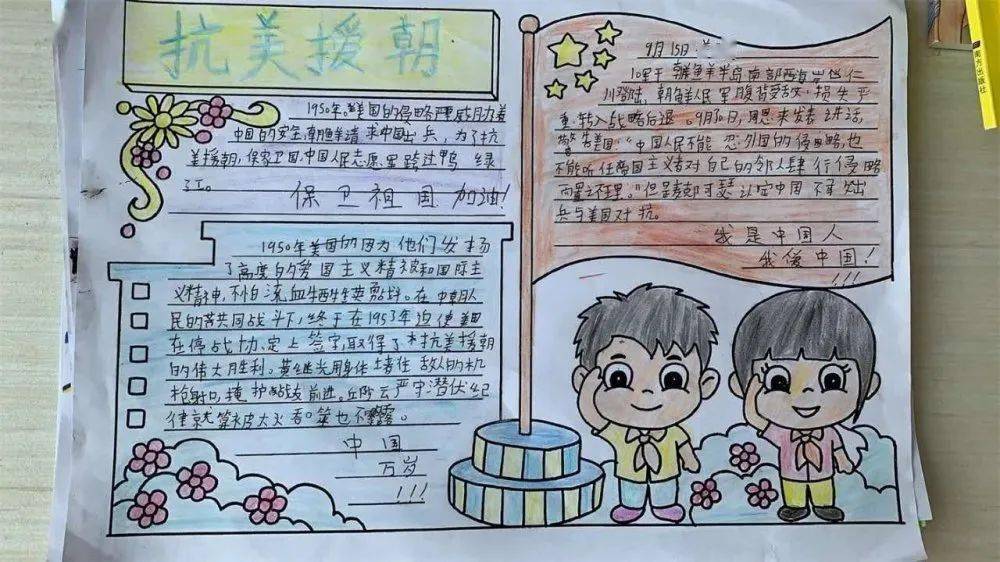 抗美援朝
1950年。美国的侵略严重威胁着
中国的安全,朝鲜请求中国出兵,为了抗
美援朝,保家卫国,中国人民志愿军跨过鸭绿
了江。
保卫祖国加油!
1950年美国的因为他们发扬
了高度的爱国主义精神和国际主
义精神,不怕流血牺牲英勇战。在中朝人
民的共同战斗下,终于在1953年迫使美国
在停战协定上签字,取得了抗美援朝
的伟大胜利。黄继光用身体堵住敌人的机
枪射口,掩护战友前进。丘陵云严守潜伏纪
律就算被大火吞噬也不暴露。
中国
万岁
!!!
9月15日
10军于朝鲜半岛南部西海岸也仁
川登陆,朝鲜人民军腹背受敌,损失严
重,转入战略后退。9月30日,周恩来发表讲话,
警告美国:“中国人民不能忍外国的侵略,也
不能听任帝国主义者对自己的邻人肆行侵略
而置之不理。”但是麦克阿瑟认定中国不可能出
兵与美国对抗。
我是中国人
我爱中国!
!!!
南方出版社